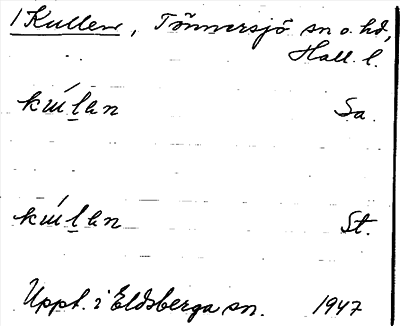 1 Kullen, Tönnersjö sn o. hd,
Hall. l.
kùl̠ən Sa.
kùl̠ən St.
Uppt. i Eldsberga sn. 1947